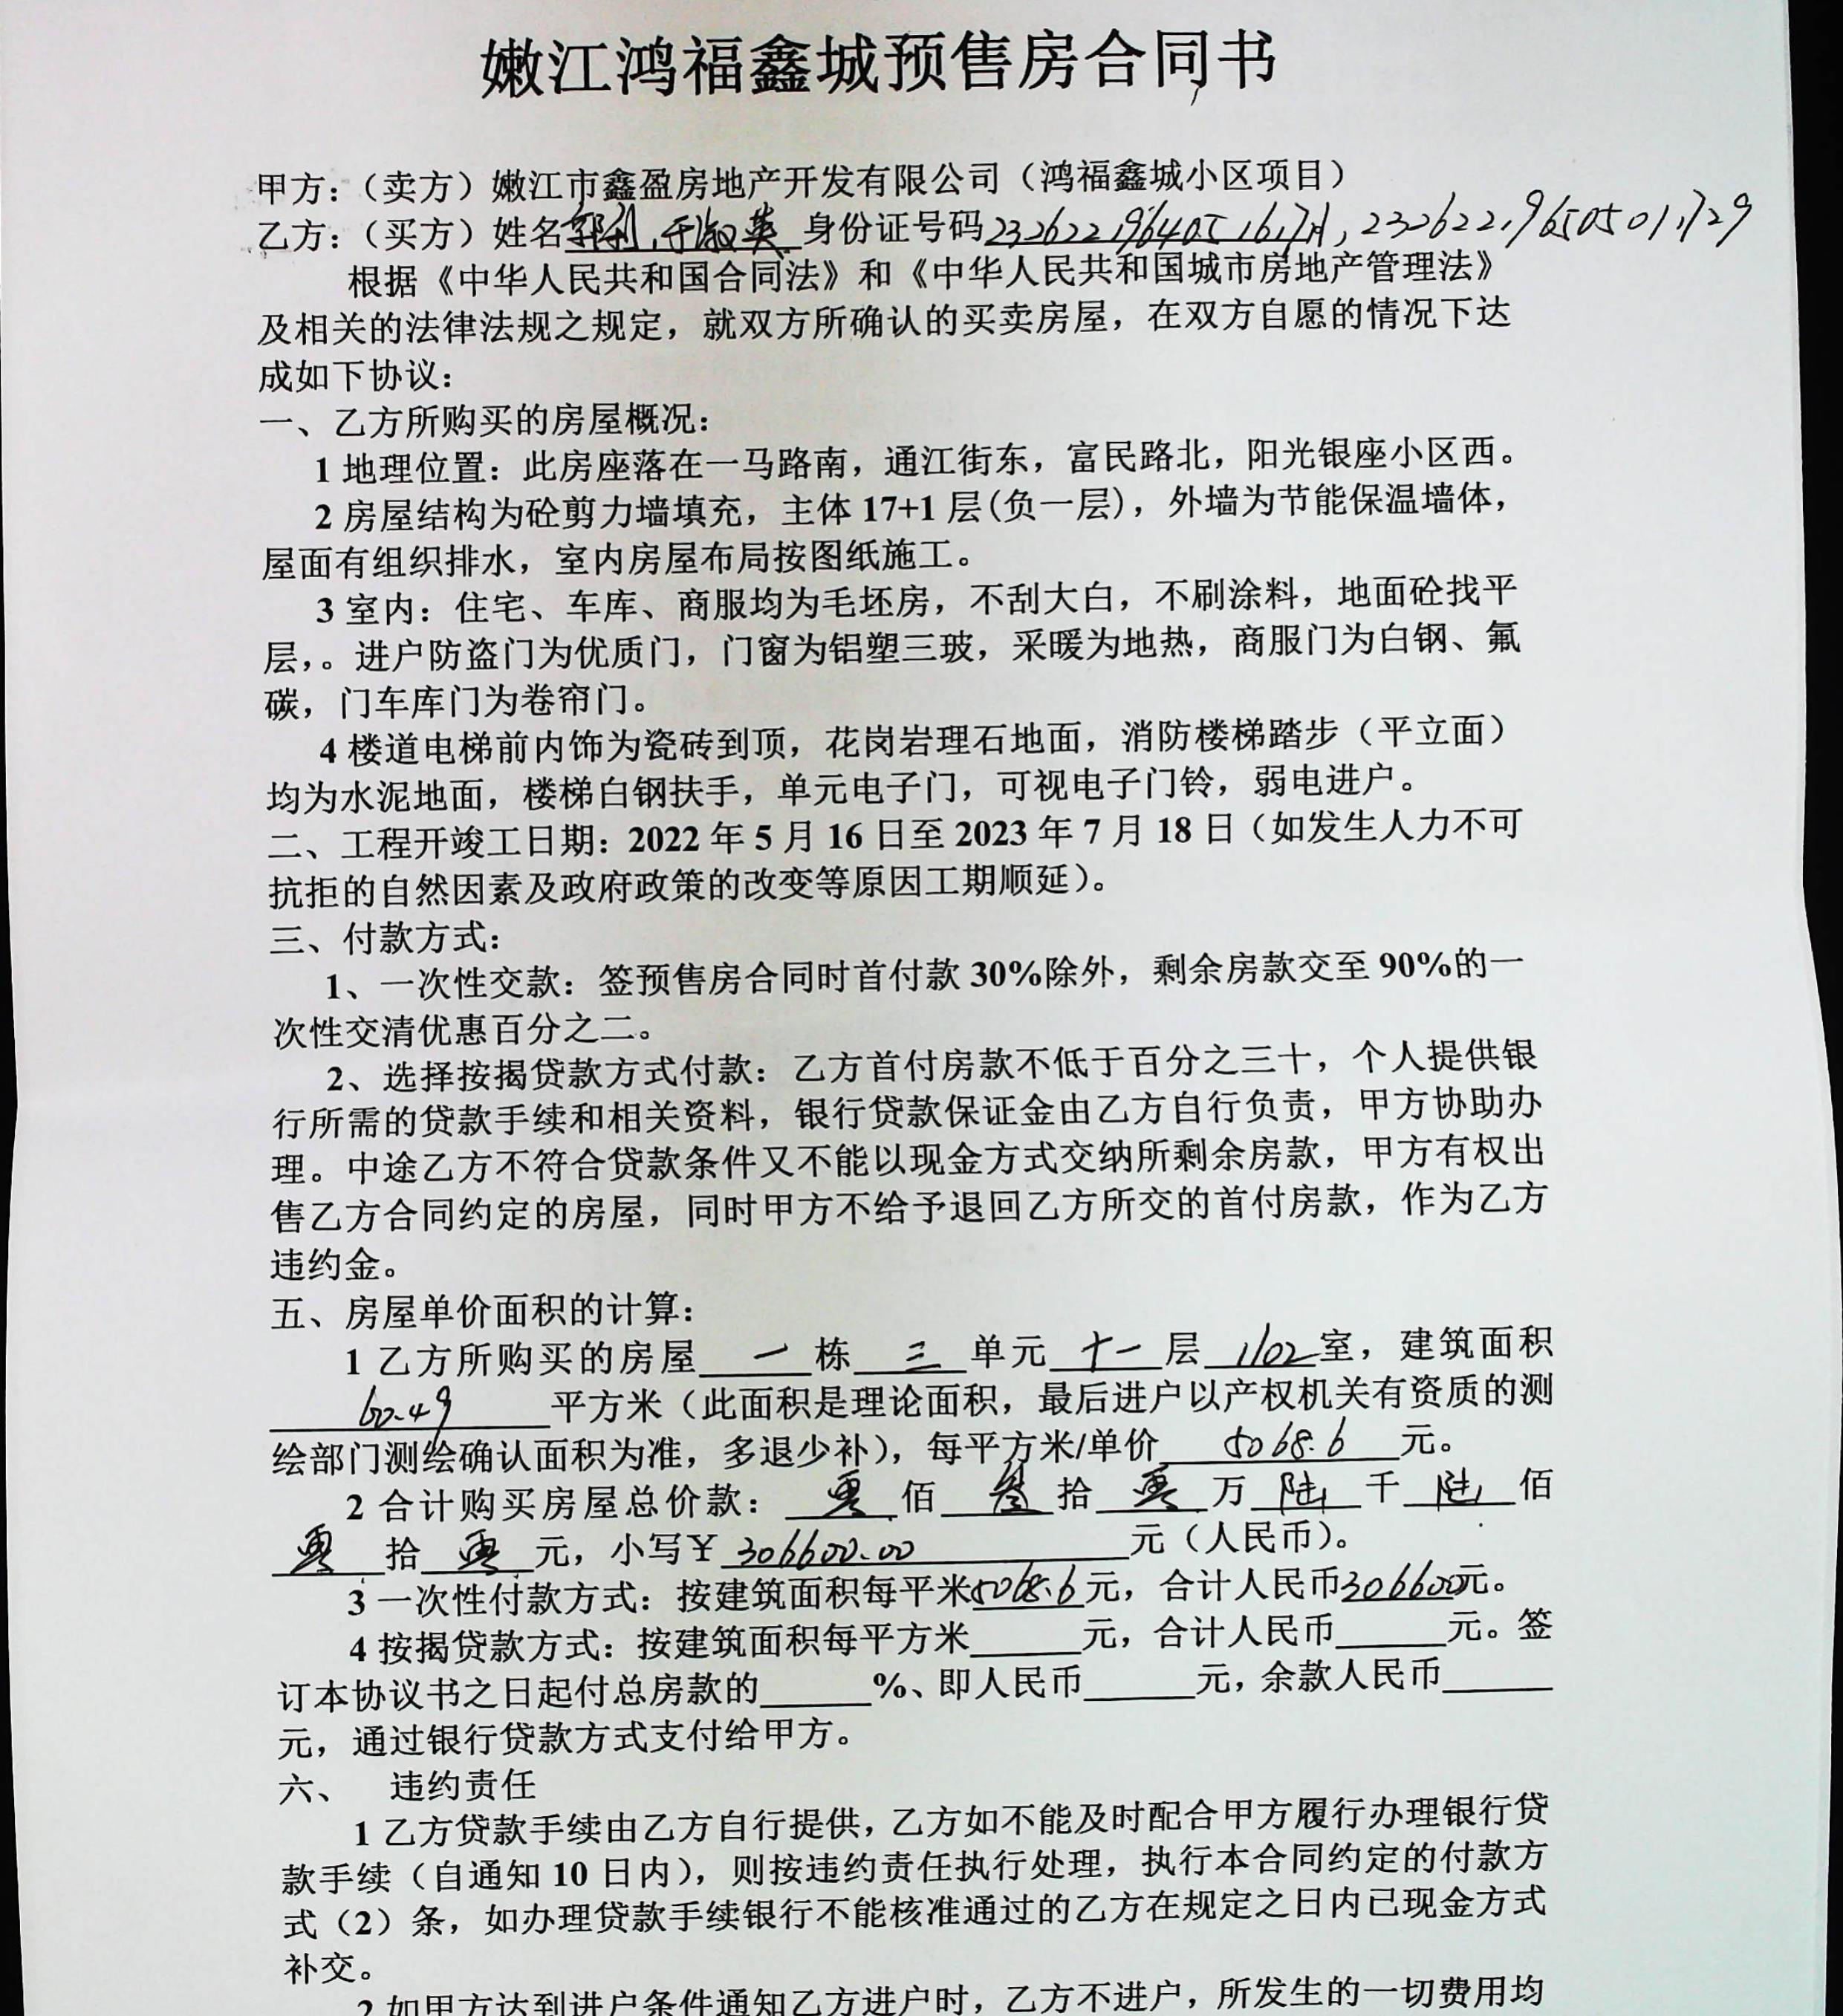 嫩江鸿福鑫城预售房合同书
甲方：（卖方）嫩江市鑫盈房地产开发有限公司（鸿福鑫城小区项目）
乙方：（买方）姓名 于淑英 身份证号码
根据《中华人民共和国合同法》和《中华人民共和国城市房地产管理法》
及相关的法律法规之规定，就双方所确认的买卖房屋，在双方自愿的情况下达
成如下协议：
一、乙方所购买的房屋概况：
1 地理位置：此房座落在一马路南，通江街东，富民路北，阳光银座小区西。
2 房屋结构为砼剪力墙填充，主体 17+1 层(负一层)，外墙为节能保温墙体，
屋面有组织排水，室内房屋布局按图纸施工。
3 室内：住宅、车库、商服均为毛坯房，不刮大白，不刷涂料，地面砼找平
层，。进户防盗门为优质门，门窗为铝塑三玻，采暖为地热，商服门为白钢、氟
碳，门车库门为卷帘门。
4 楼道电梯前内饰为瓷砖到顶，花岗岩理石地面，消防楼梯踏步（平立面）
均为水泥地面，楼梯白钢扶手，单元电子门，可视电子门铃，弱电进户。
二、工程开竣工日期：2022 年 5 月 16 日至 2023 年 7 月 18 日（如发生人力不可
抗拒的自然因素及政府政策的改变等原因工期顺延）。
三、付款方式：
1、一次性交款：签预售房合同时首付款 30%除外，剩余房款交至 90%的一
次性交清优惠百分之二。
2、选择按揭贷款方式付款：乙方首付房款不低于百分之三十，个人提供银
行所需的贷款手续和相关资料，银行贷款保证金由乙方自行负责，甲方协助办
理。中途乙方不符合贷款条件又不能以现金方式交纳所剩余房款，甲方有权出
售乙方合同约定的房屋，同时甲方不给予退回乙方所交的首付房款，作为乙方
违约金。
五、房屋单价面积的计算：
1 乙方所购买的房屋 一 栋 三 单元 十一 层 1102 室，建筑面积
60.49 平方米（此面积是理论面积，最后进户以产权机关有资质的测
绘部门测绘确认面积为准，多退少补），每平方米/单价 5068.6 元。
2 合计购买房屋总价款： 零 佰 叁 拾 零 万 陆 千 陆 佰
零 拾 零 元，小写￥ 306600.00 元（人民币）。
3 一次性付款方式：按建筑面积每平米5068.6元，合计人民币306600元。
4 按揭贷款方式：按建筑面积每平方米______元，合计人民币______元。签
订本协议书之日起付总房款的______%、即人民币______元，余款人民币______
元，通过银行贷款方式支付给甲方。
六、 违约责任
1 乙方贷款手续由乙方自行提供，乙方如不能及时配合甲方履行办理银行贷
款手续（自通知 10 日内），则按违约责任执行处理，执行本合同约定的付款方
式（2）条，如办理贷款手续银行不能核准通过的乙方在规定之日内已现金方式
补交。
2 如甲方达到进户条件通知乙方进户时，乙方不进户，所发生的一切费用均